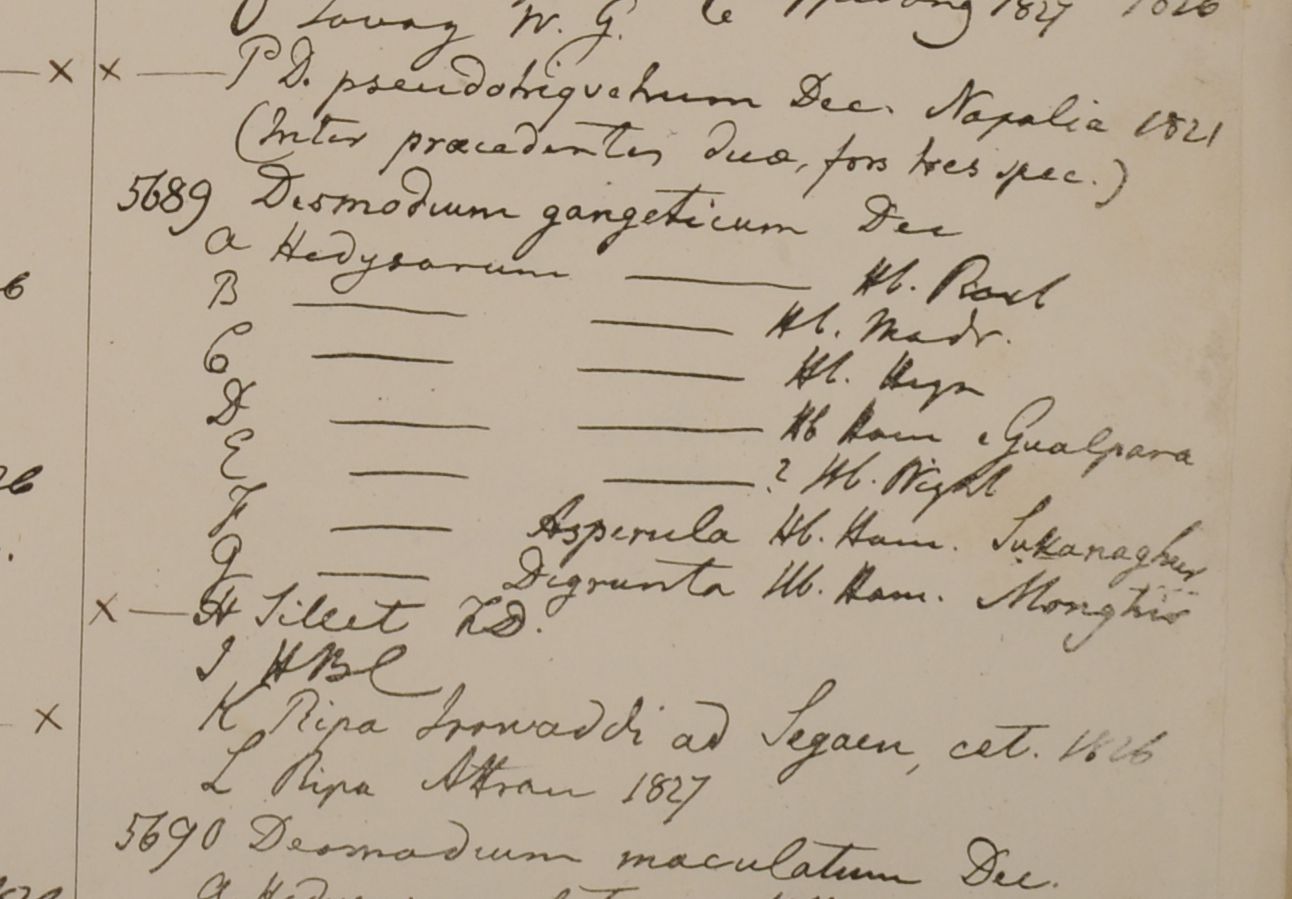 O Tavoy W. G. & 1827 1826
× × — P D. pseudotriquetrum Dec. Napalia 1821
(Inter præcedentes duæ, fors tres spec.)
5689 Desmodium gangeticum Dec
a Hedysarum — Hb. Roxb
B — — Hb. Madr.
C — — Hb. Heyn
D — — Hb Ham e Gualpara
E — — ? Hb. Wight
F — Asperula Hb. Ham. Sukanaghur
G — Digrunta Hb. Ham. Monghir
× — H Sillet FD.
I HBC
× K Ripa Irowaddi ad Segaen, cet. 1826
L Ripa Attran 1827
5690 Desmodium maculatum Dec.